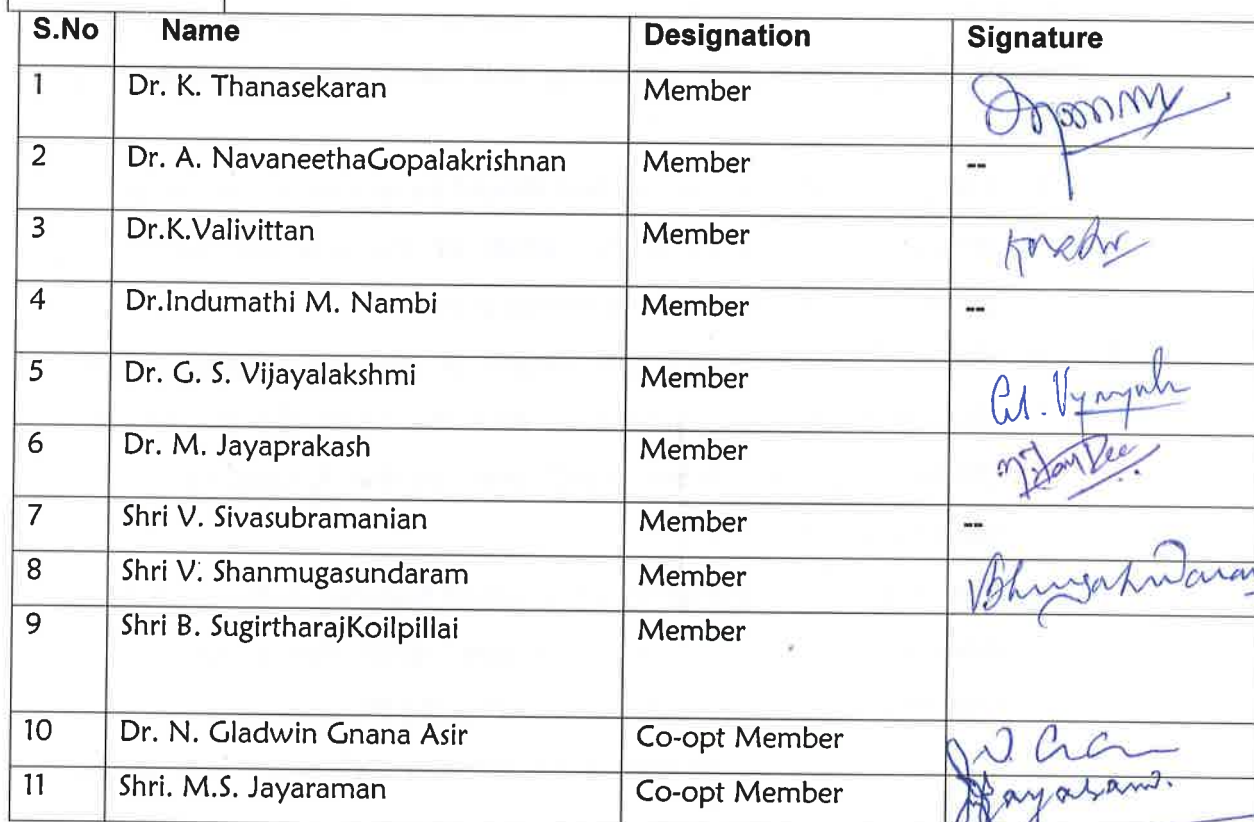 S.No Name Designation Signature
1 Dr. K. Thanasekaran Member
2 Dr. A. NavaneethaGopalakrishnan Member --
3 Dr.K.Valivittan Member
4 Dr.Indumathi M. Nambi Member --
5 Dr. G. S. Vijayalakshmi Member
6 Dr. M. Jayaprakash Member
7 Shri V. Sivasubramanian Member --
8 Shri V. Shanmugasundaram Member
9 Shri B. SugirtharajKoilpillai Member
10 Dr. N. Gladwin Gnana Asir Co-opt Member
11 Shri. M.S. Jayaraman Co-opt Member